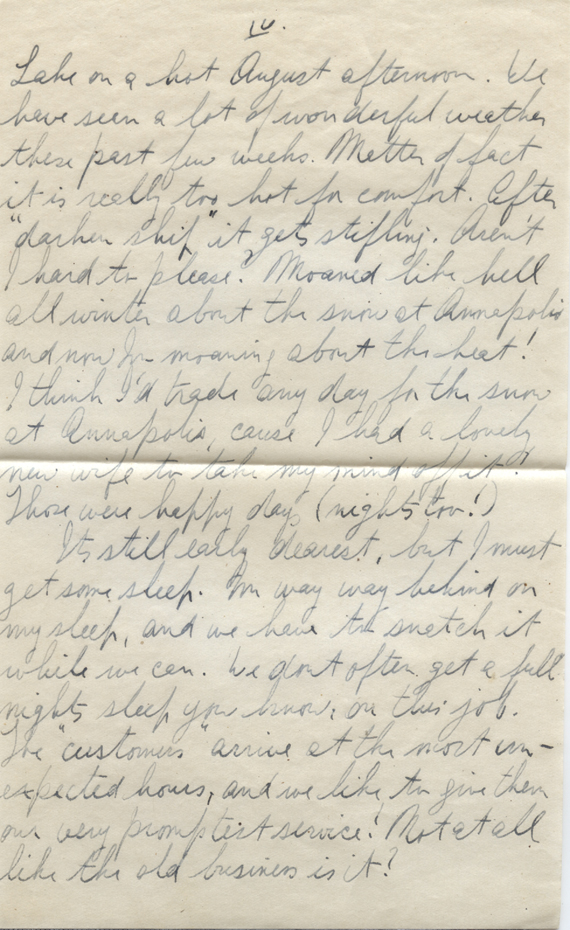 IV.
Lake on a hot August afternoon. We
have seen a lot of wonderful weather
these past few weeks. Matter of fact
it is really too hot for comfort. After
"darken ship" it gets stifling. Aren't
I hard to please? Moaned like hell
all winter about the snow at Annapolis
and now I'm moaning about the heat!
I think I'd trade any day for the snow
at Annapolis, cause I had a lovely
new wife to take my mind off it!
Those were happy days (nights too!)
Its still early dearest, but I must
get some sleep. I'm way way behind on
my sleep, and we have to snatch it
while we can. We dont often get a full
nights sleep you know, on this job.
The "customers" arrive at the most un-
expected hours, and we like to give them
our very promptest service! Not at all
like the old business is it?